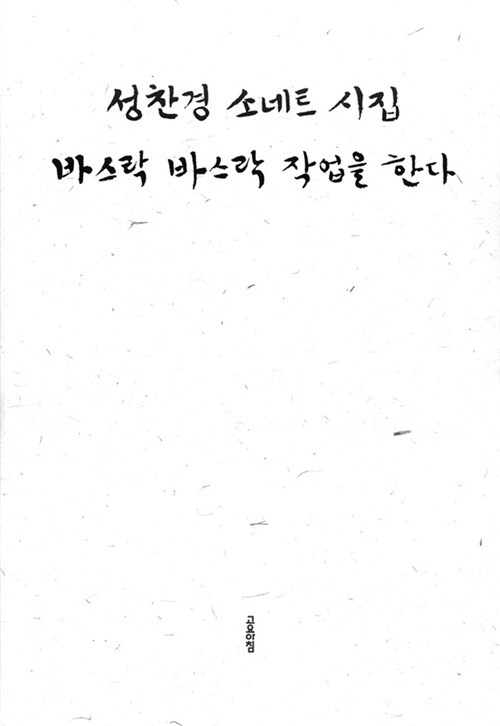 성찬경 소네트 시집
바스락 바스락 작업을 한다
고요아침